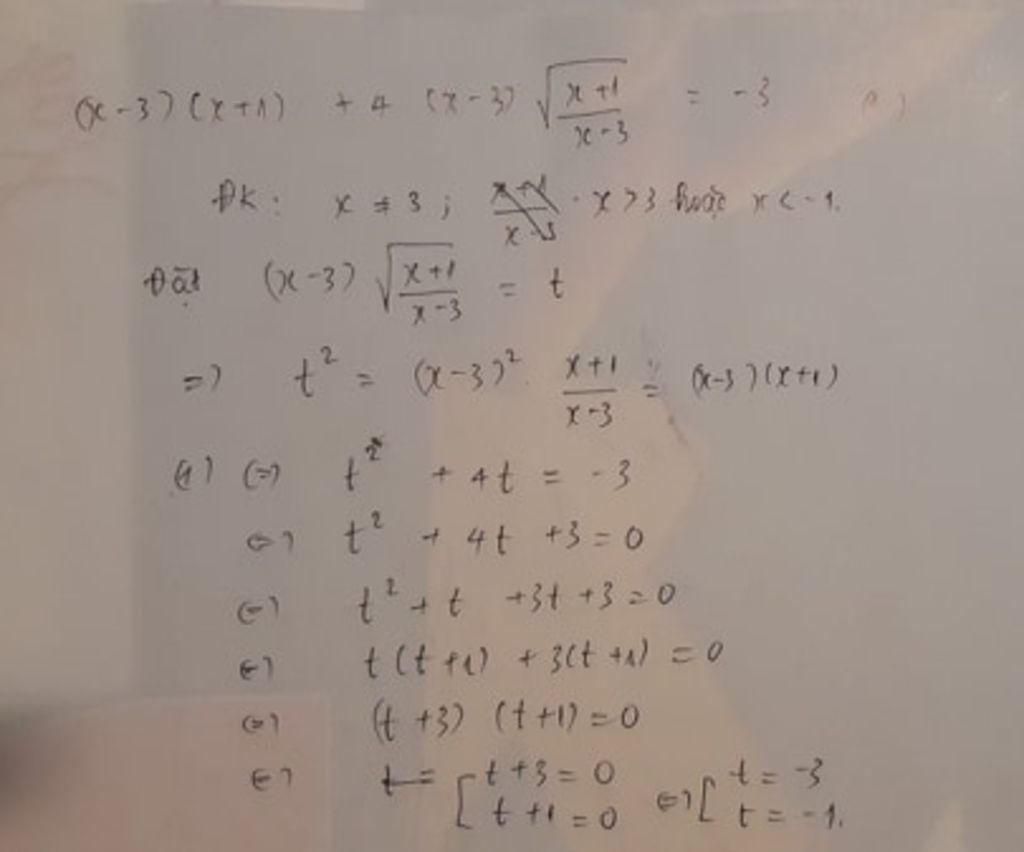 (x-3)(x+1) + 4(x-3)√((x+1)/(x-3)) = -3
ĐK: x ≠ 3; x>3 hoặc x<-1.
Đặt (x-3)√((x+1)/(x-3)) = t
=> t² = (x-3)² · (x+1)/(x-3) = (x-3)(x+1)
(1) <=> t² + 4t = -3
<=> t² + 4t + 3 = 0
<=> t² + t + 3t + 3 = 0
<=> t(t+1) + 3(t+1) = 0
<=> (t+3)(t+1) = 0
<=> [ t+3 = 0 <=> [ t = -3
t+1 = 0 t = -1.